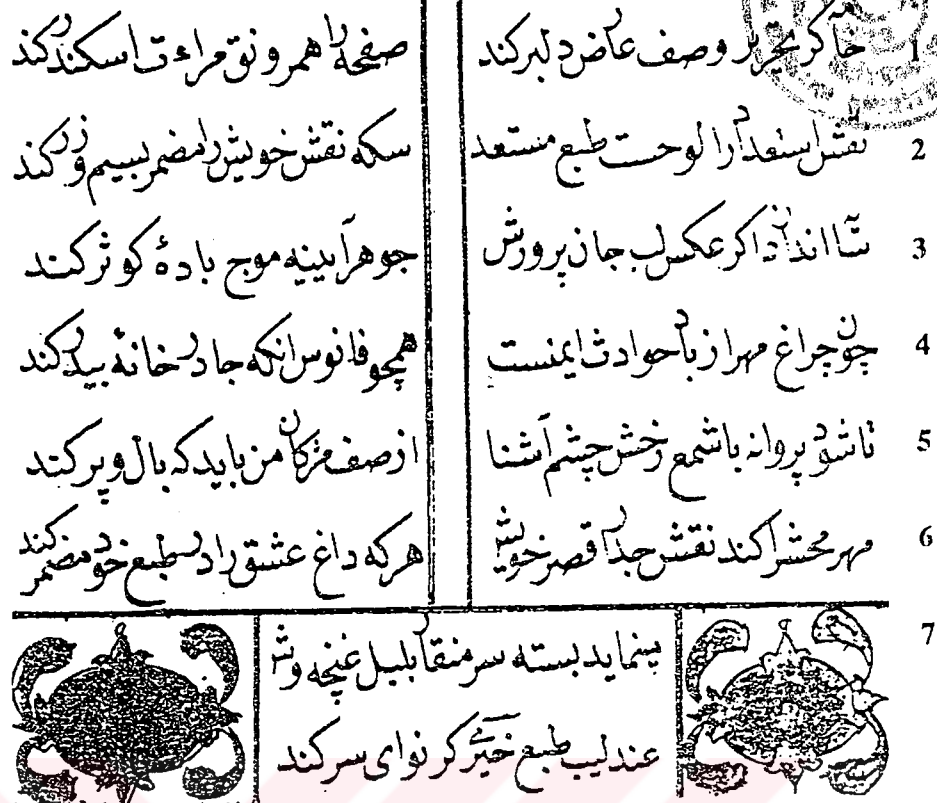 1 خامه گر تحریر وصف عارض دلبر کند صفحه را همرونق مراءت اسکندر کند
2 نقش استعداد را لوحست طبع مستعد سکه نقش خویش را مضمر بسیم و زر کند
3 شانه اندازد اگر عکس لب جان پرورش جوهر آیینه موج بادهٔ کوثر کند
4 چون چراغ مهر از باد حوادث ایمنست همچو فانوس انکه جا در خانهٔ بیدر کند
5 تا شود پروانه با شمع رخش چشم آشنا از صف مژکان من باید که بال و پر کند
6 مهر محشر را کند نقش جدار قصر خویش هر که داغ عشق را در طبع خود مضمر کند
7 مینماید بسته سر منقار بلبل غنچه وش
عندلیب طبع خیری کر نوای سر کند